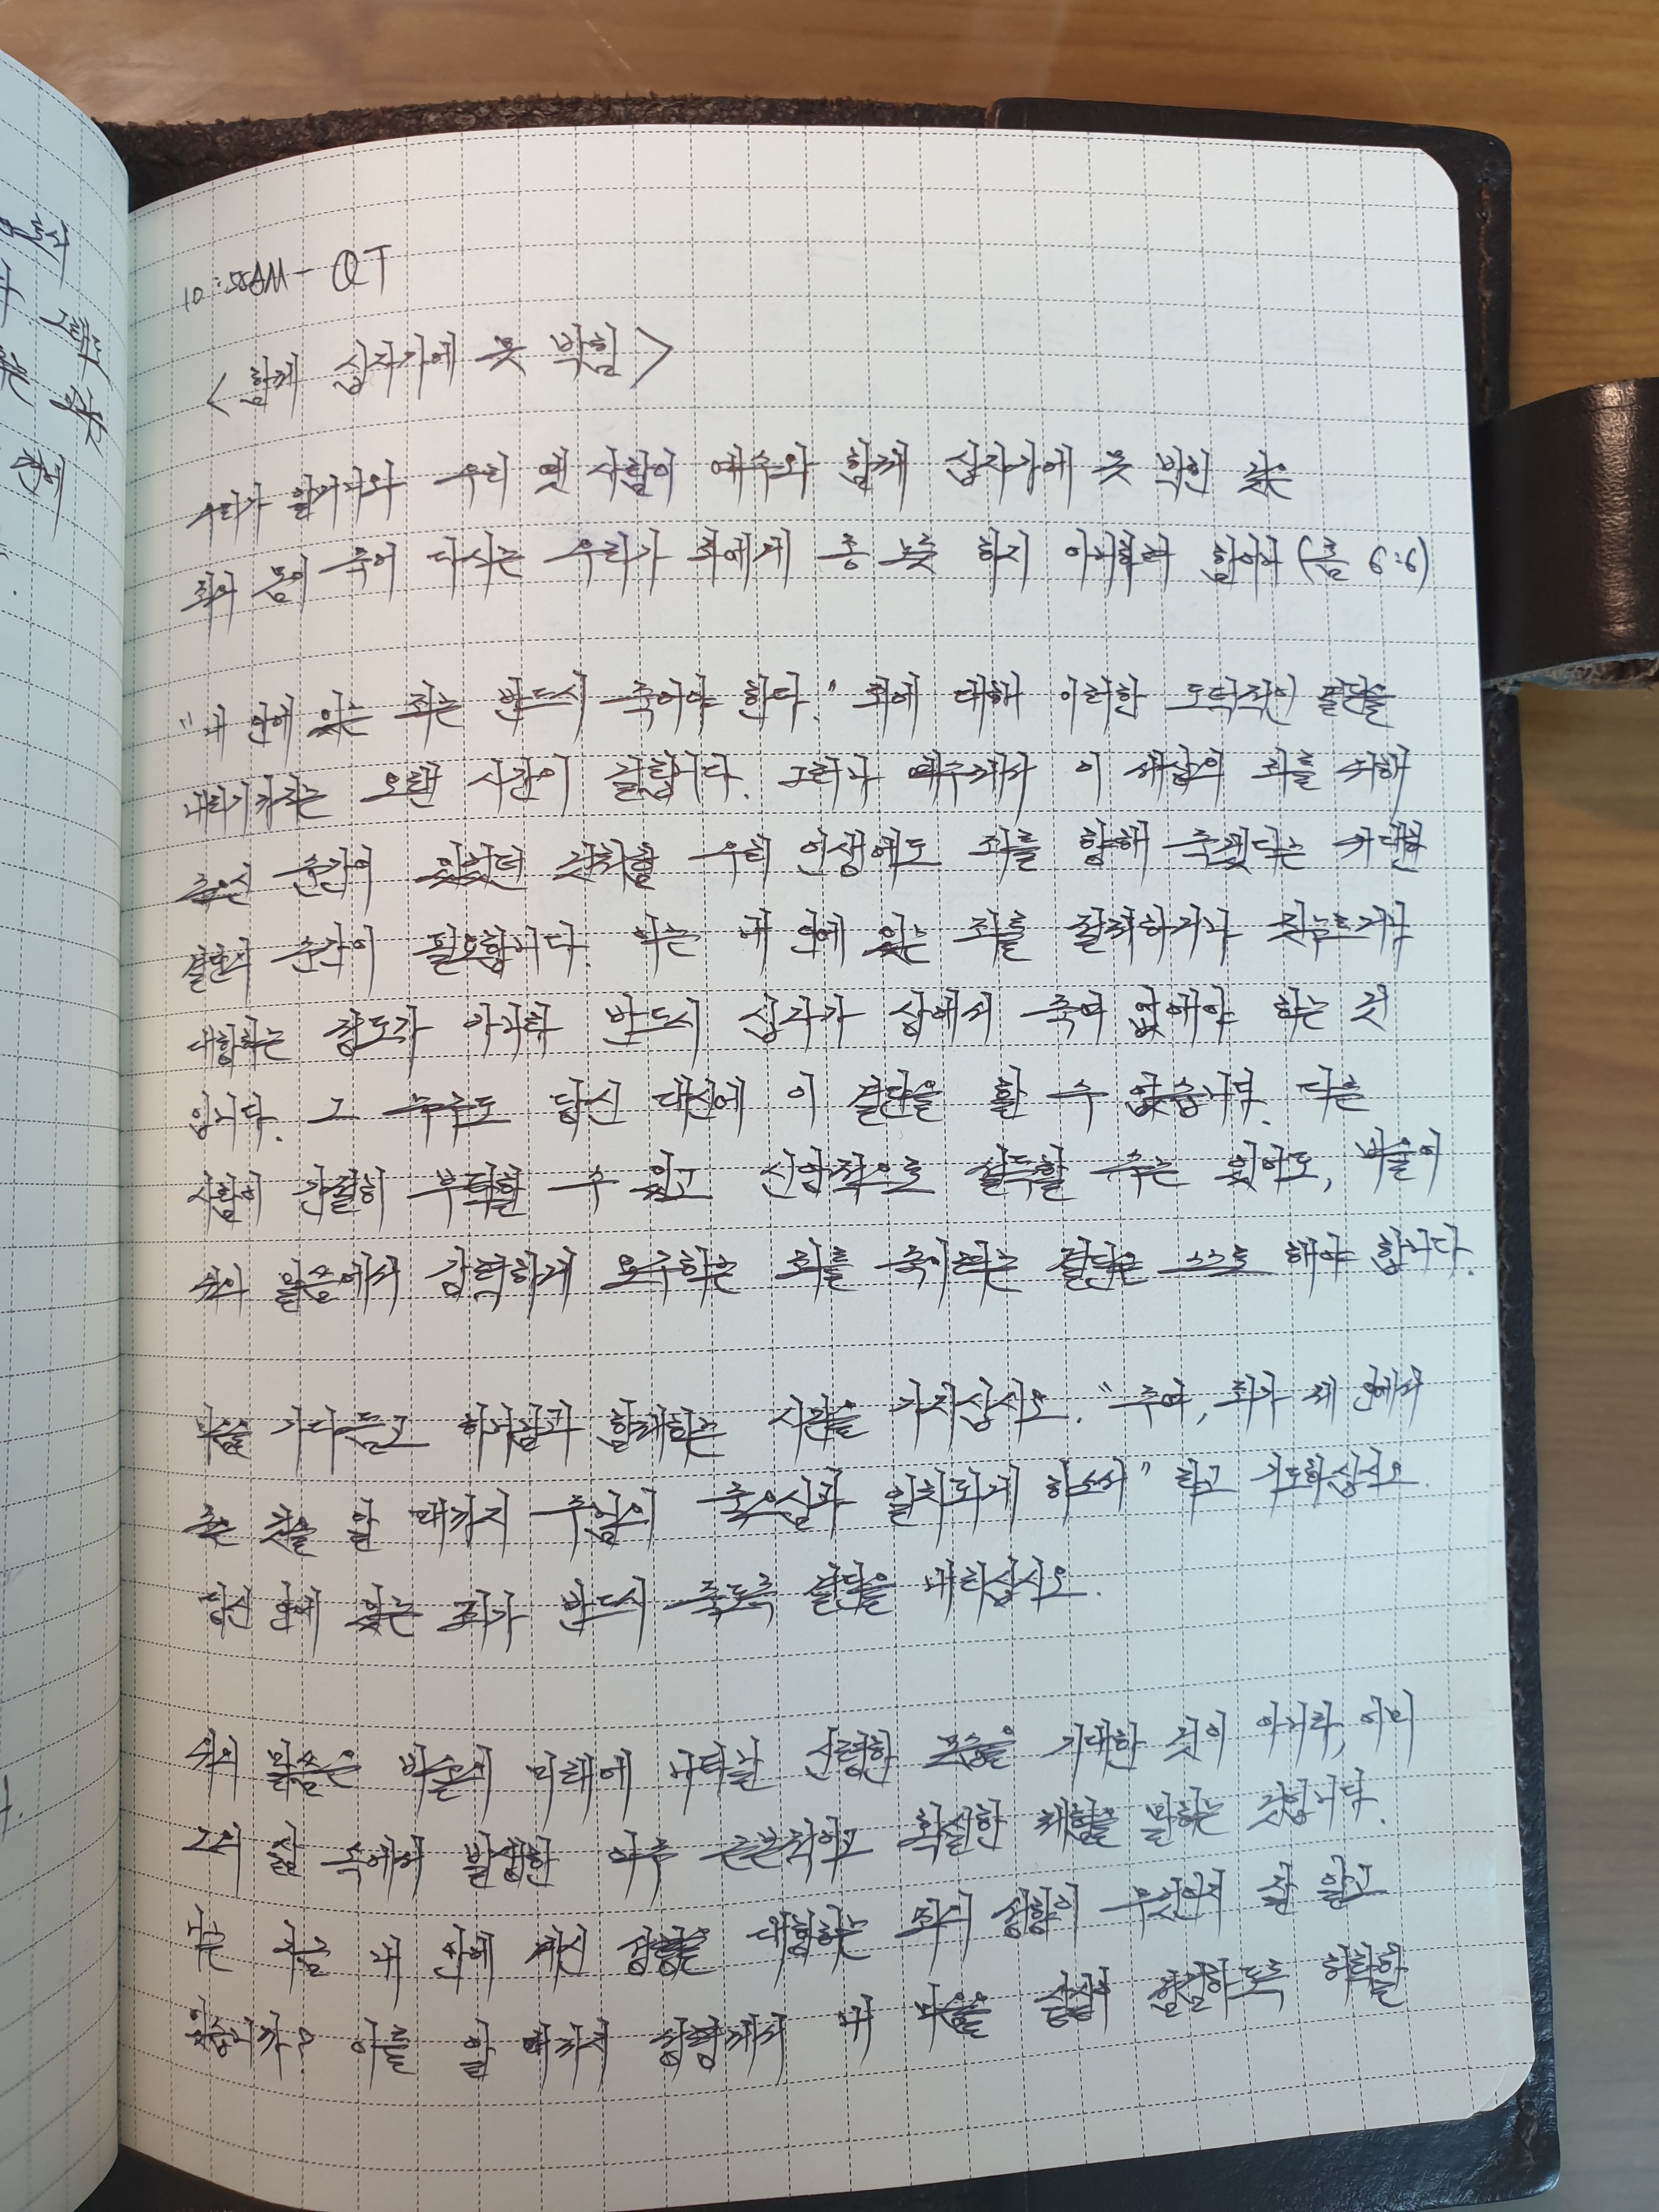 10:58AM - QT
<함께 십자가에 못 박힘>
우리가 알거니와 우리 옛 사람이 예수와 함께 십자가에 못 박힌 것은
죄의 몸이 죽어 다시는 우리가 죄에게 종 노릇 하지 아니하려 함이니 (롬 6:6)
"내 안에 있는 죄는 반드시 죽어야 한다." 죄에 대해 이러한 도덕적인 결단을
내리기까지는 오랜 시간이 걸립니다. 그러나 예수께서 이 세상의 죄를 위해
죽으신 순간이 있었던 것처럼 우리 인생에도 죄를 향해 죽겠다는 위대한
결단의 순간이 필요합니다. 이는 내 안에 있는 죄를 절제하거나 짓누르거나
대항하는 정도가 아니라 반드시 십자가 상에서 죽여 없애야 하는 것
입니다. 그 누구도 당신 대신에 이 결단을 할 수 없습니다. 다른
사람이 간절히 부탁할 수 있고 신앙적으로 설득할 수는 있어도, 바울이
위의 말씀에서 강력하게 요구하는 죄를 죽이라는 결단은 스스로 해야 합니다.
마음을 가다듬고 하나님과 함께하는 시간을 가지십시오. "주여, 죄가 제 안에서
죽은 것을 알 때까지 주님의 죽으심과 일치되게 하소서" 하고 기도하십시오.
당신 안에 있는 죄가 반드시 죽도록 결단을 내리십시오.
위의 말씀은 바울의 미래에 나타날 신령한 모습을 기대한 것이 아니라, 이미
그의 삶 속에서 발생한 아주 근본적이고 확실한 체험을 말하는 것입니다.
나는 지금 내 안에 계신 성령을 대항하는 죄의 성향이 무엇인지 잘 알고
있습니까? 이를 알 때까지 성령께서 내 마음을 샅샅이 점검하도록 허락할